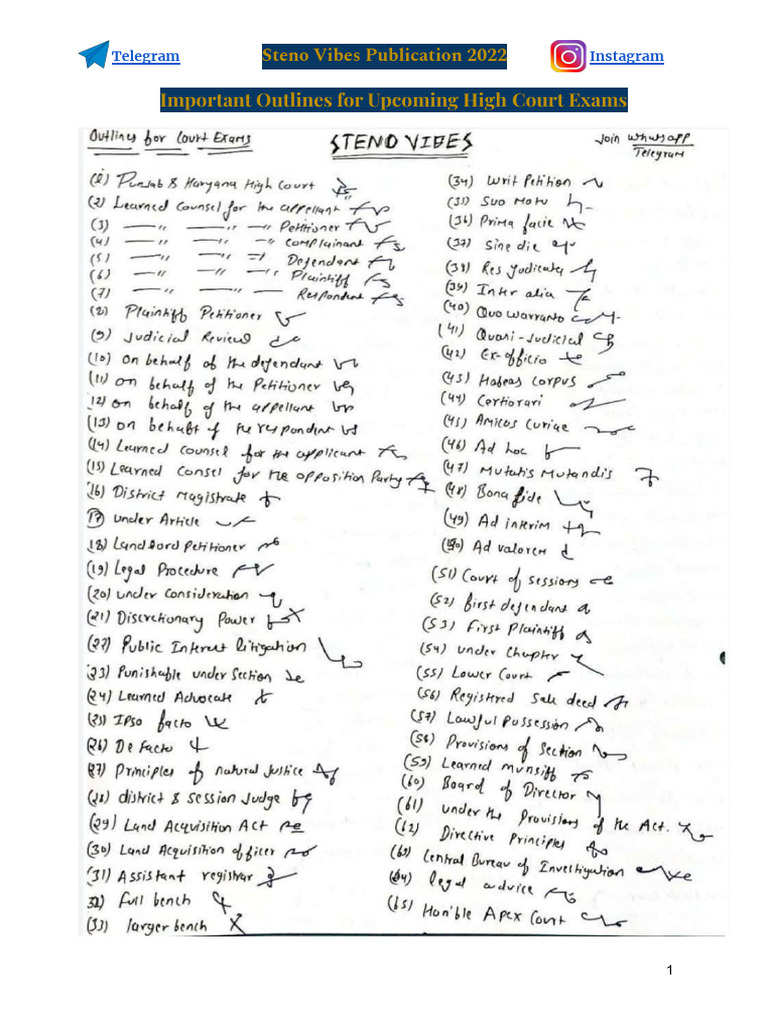 Telegram
Steno Vibes Publication 2022
Instagram
Important Outlines for Upcoming High Court Exams
Outlines for Court Exams
STENO VIBES
Join Whatsapp
Telegram
(1) Punjab & Haryana High Court
(2) Learned Counsel for the appellant
(3) —〃 —〃 —〃 Petitioner
(4) —〃 —〃 —〃 Complainant
(5) —〃 —〃 —〃 Defendant
(6) —〃 —〃 —〃 Plaintiff
(7) —〃 —〃 — Respondent
(8) Plaintiff Petitioner
(9) Judicial Review
(10) on behalf of the defendant
(11) on behalf of the Petitioner
(12) on behalf of the appellant
(13) on behalf of the respondent
(14) Learned counsel for the applicant
(15) Learned Consel for the opposition Party
(16) District Magistrate
(17) under Article
(18) Landlord Petitioner
(19) Legal Procedure
(20) under consideration
(21) Discretionary Power
(22) Public Interest litigation
(23) Punishable under Section
(24) Learned Advocate
(25) IPso facto
(26) De facto
(27) Principles of natural Justice
(28) district & session Judge
(29) Land Acquisition Act
(30) Land Acquisition officer
(31) Assistant registrar
(32) Full bench
(33) larger bench
(34) Writ Petition
(35) Suo Motu
(36) Prima facie
(37) Sine die
(38) Res Judicata
(39) Inter alia
(40) Quo warranto
(41) Quasi-Judicial
(42) Ex-officio
(43) Habeas corpus
(44) Certiorari
(45) Amicus Curiae
(46) Ad hoc
(47) Mutatis Mutandis
(48) Bona fide
(49) Ad interim
(50) Ad valorem
(51) Court of sessions
(52) first defendant
(53) First Plaintiff
(54) under Chapter
(55) Lower Court
(56) Registered Sale deed
(57) Lawful Possession
(58) Provisions of Section
(59) Learned munsiff
(60) Board of Director
(61) under the Provisions of the Act.
(62) Directive Principles
(63) Central Bureau of Investigation
(64) legal advice
(65) Hon'ble Apex Court
1